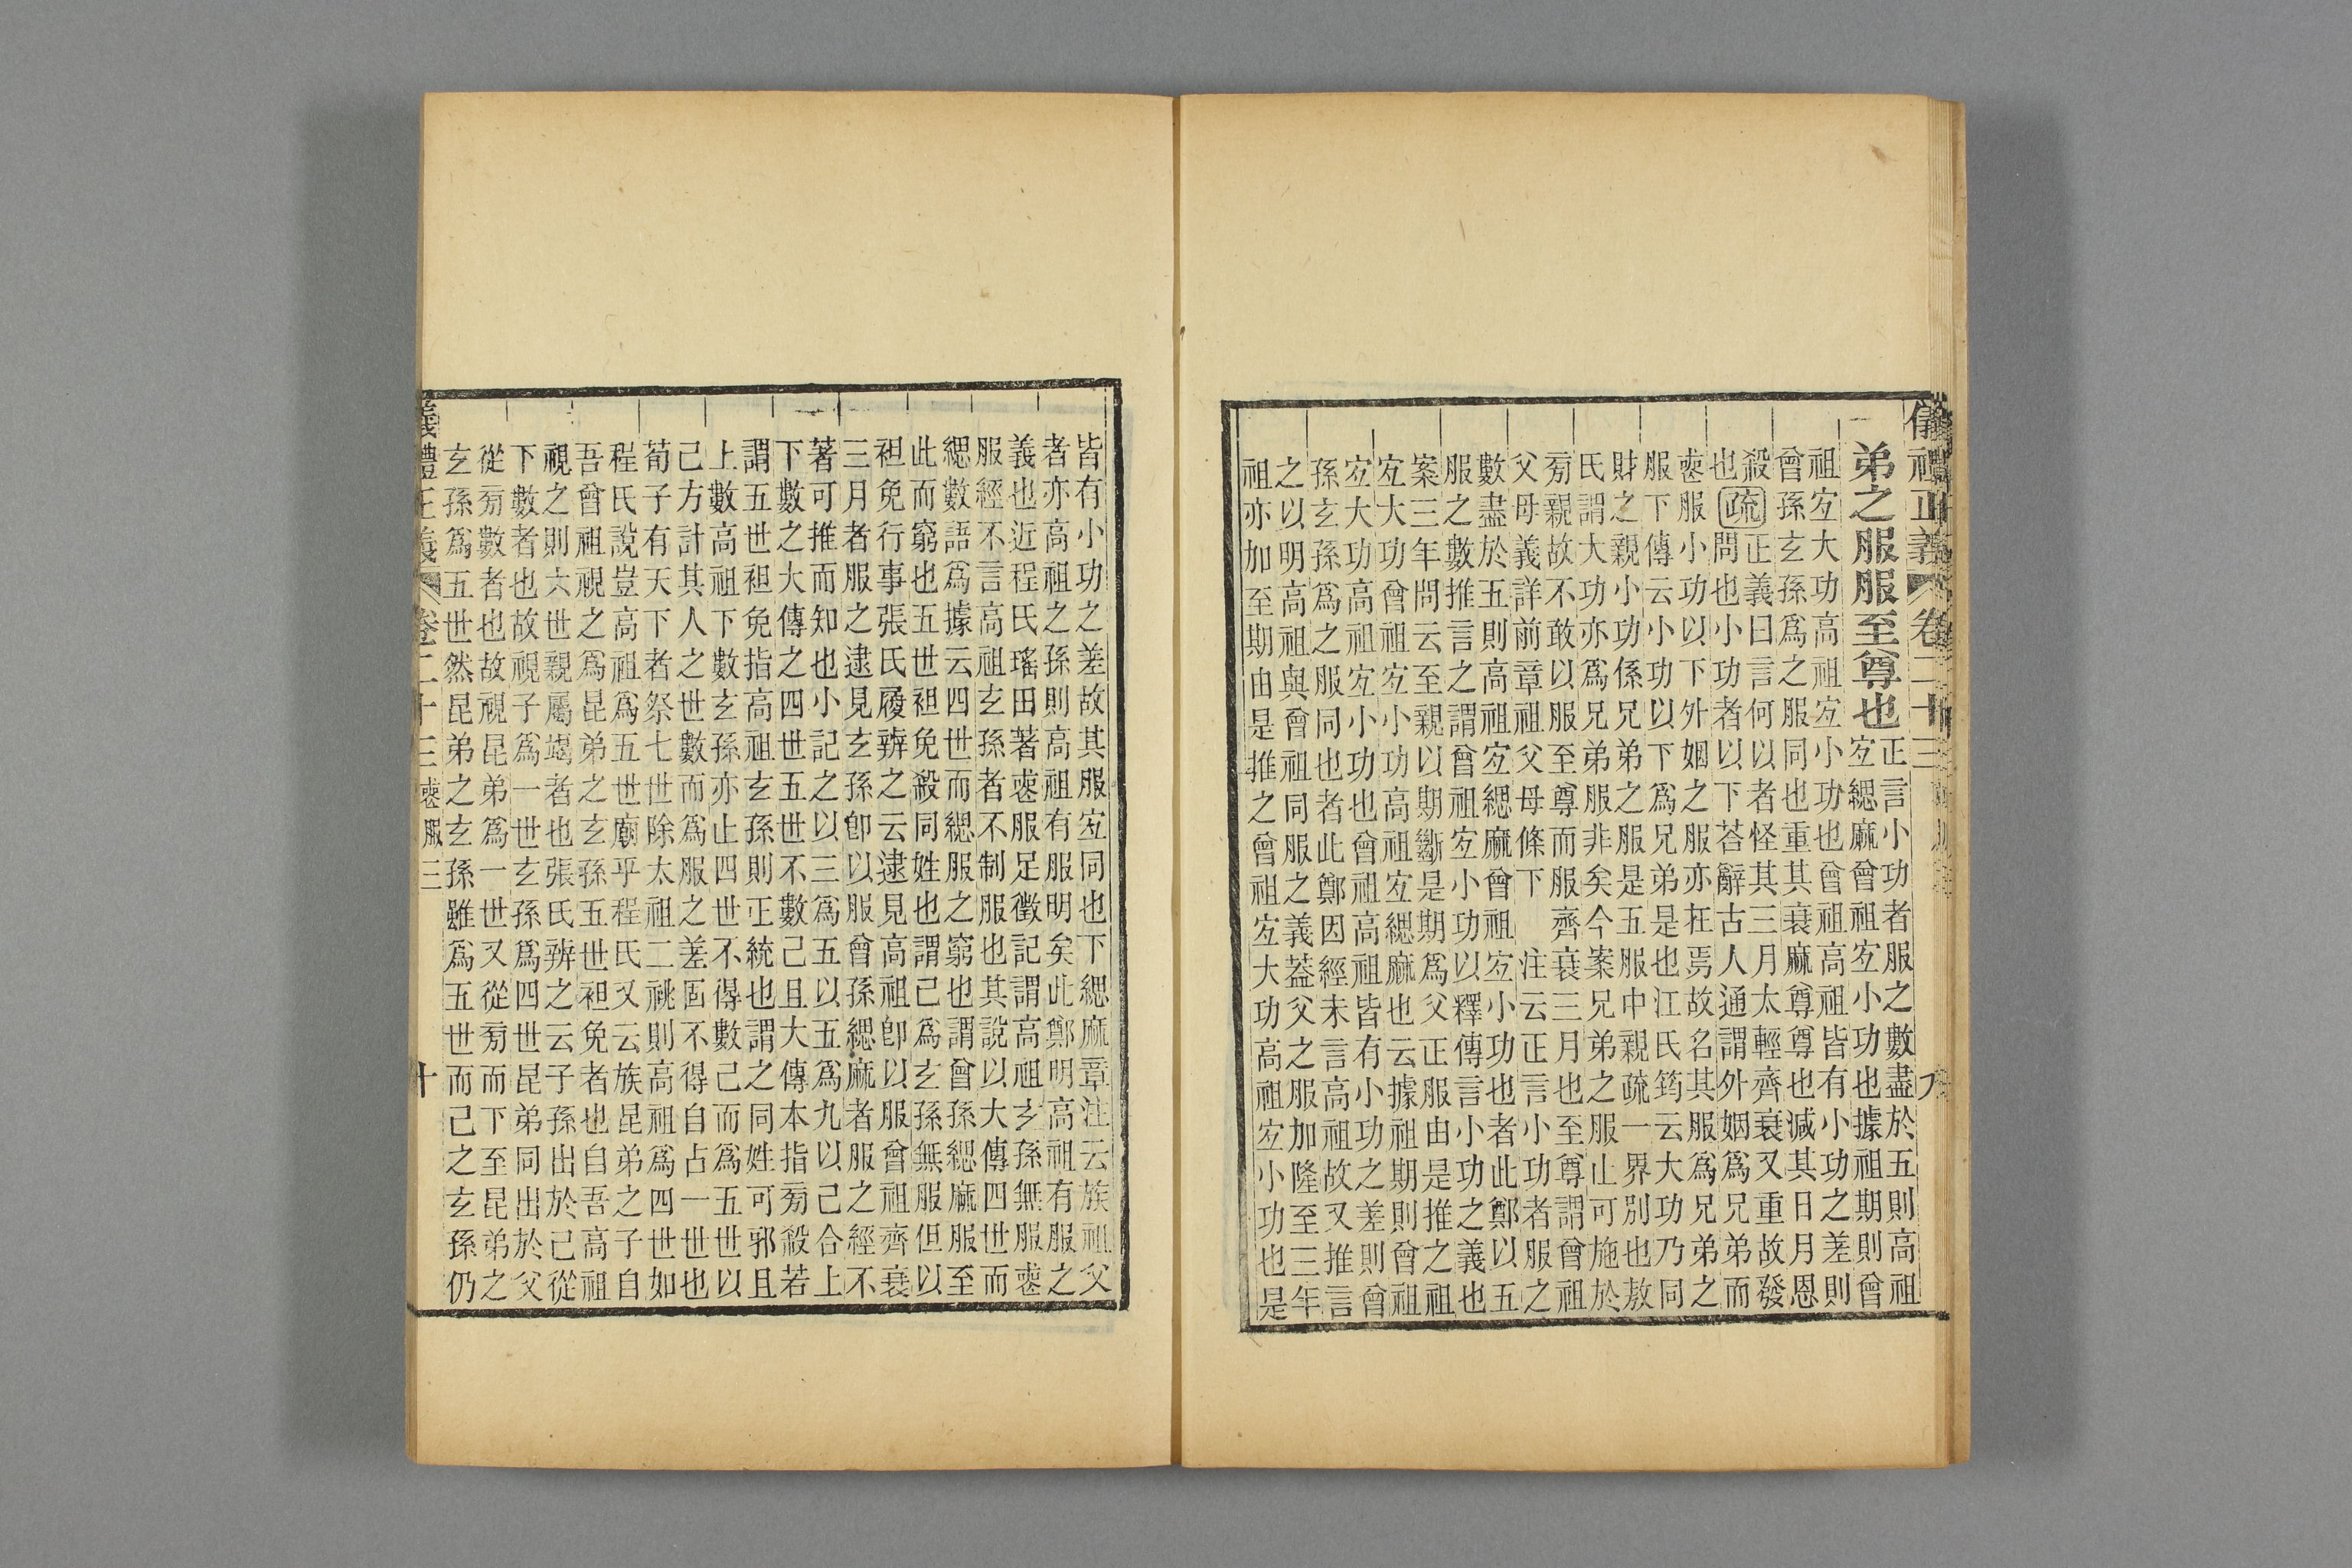 儀禮正義 卷二十三 九
弟之服服至尊也 正言小功者服之數盡於五則高祖
宐緦麻曾祖宐小功也據祖期則曾
祖宐大功高祖宐小功也曾祖高祖皆有小功之差則
曾孫玄孫爲之服同也重其衰麻尊尊也減其日月恩
殺也
疏
正義曰言何以者怪其三月太輕齊衰又重故發
問也小功者以下荅辭古人通謂外姻爲兄弟而
䘮服小功以下外姻之服亦在焉故名其服爲兄弟之
服下傳云小功以下爲兄弟是也江氏筠云大功乃同
財之親小功係兄弟之服是五服中親疏一界別也敖
氏謂大功亦爲兄弟服非矣今案兄弟之服止可施於
旁親故不敢以服至尊而服齊衰三月也至尊謂曾祖
父母義詳前章祖父母條下 注云正言小功者服之
數盡於五則高祖宐緦麻曾祖宐小功也者此鄭以五
服之數推言之謂曾祖宐小功以釋傳言小功之義也
案三年問云至親以期斷是期爲父正服由是推之祖
宐大功曾祖宐小功高祖宐緦麻也云據祖期則曾祖
宐大功高祖宐小功也曾祖高祖皆有小功之差則曾
孫玄孫爲之服同也者此鄭因經未言高祖故又推言
之以明高祖與曾祖同服之義葢父之服加隆至三年
祖亦加至期由是推之曾祖宐大功高祖宐小功也是
皆有小功之差故其服宐同也下緦麻章注云族祖父
者亦高祖之孫則高祖有服明矣此鄭明高祖有服之
義也近程氏瑤田著䘮服足徵記謂高祖玄孫無服䘮
服經不言高祖玄孫者不制服也其說以大傳四世而
緦數語爲據云四世而緦服之窮也謂曾孫緦麻服至
此而窮也五世袒免殺同姓也謂己爲玄孫無服但以
袒免行事張氏履辨之云逮見高祖卽以服曾祖齊衰
三月者服之逮見玄孫卽以服曾孫緦麻者服之經不
著可推而知也小記之以三爲五以五爲九以己合上
下數之大傳之四世五世不數己且大傳本指旁殺若
謂五世袒免指高祖玄孫則正統也謂之同姓可邪且
上數高祖下數玄孫亦止四世不得數己而爲五世以
己方計其人之世數而爲服之差固不得自占一世也
荀子有天下者祭七世除太祖二祧則高祖爲四世如
程氏說豈高祖爲五世廟乎程氏又云族昆弟之子自
吾曾祖視之爲昆弟之玄孫五世袒免者也自吾高祖
視之則六世親屬竭者也張氏辨之云子孫出於己從
下數者也故視子爲一世玄孫爲四世昆弟同出於父
從旁數者也故視昆弟爲一世又從旁而下至昆弟之
玄孫爲五世然昆弟之玄孫雖爲五世而己之玄孫仍
儀禮正義 卷二十三 䘮服三 十